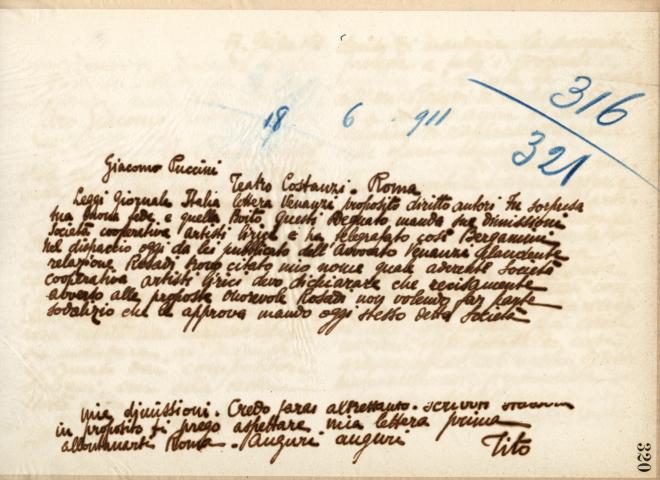 316
321
18 6 911
Giacomo Puccini
Teatro Costanzi. Roma
Leggi Giornale Italia lettera Venanzi proposito diritto autori Fu sorpresa
tua buona fede e quella Boito questi sdegnato manda sue dimissioni
Società cooperativa artisti lirici e ha telegrafato così Bergamin
Nel dispaccio oggi da lei pubblicato dell'Avvocato Venanzi
relazione Rosadi trovo citato mio nome quale aderente Società
cooperativa artisti lirici devo dichiarare che recisamente
avverso alle proposte onorevole Rosadi non volendo far parte
sodalizio che le approva mando oggi stesso detta Società
mie dimissioni. Credo farai altrettanto.
in proposito ti prego aspettare mia lettera prima
allontanarti Roma. Auguri auguri
Tito
320